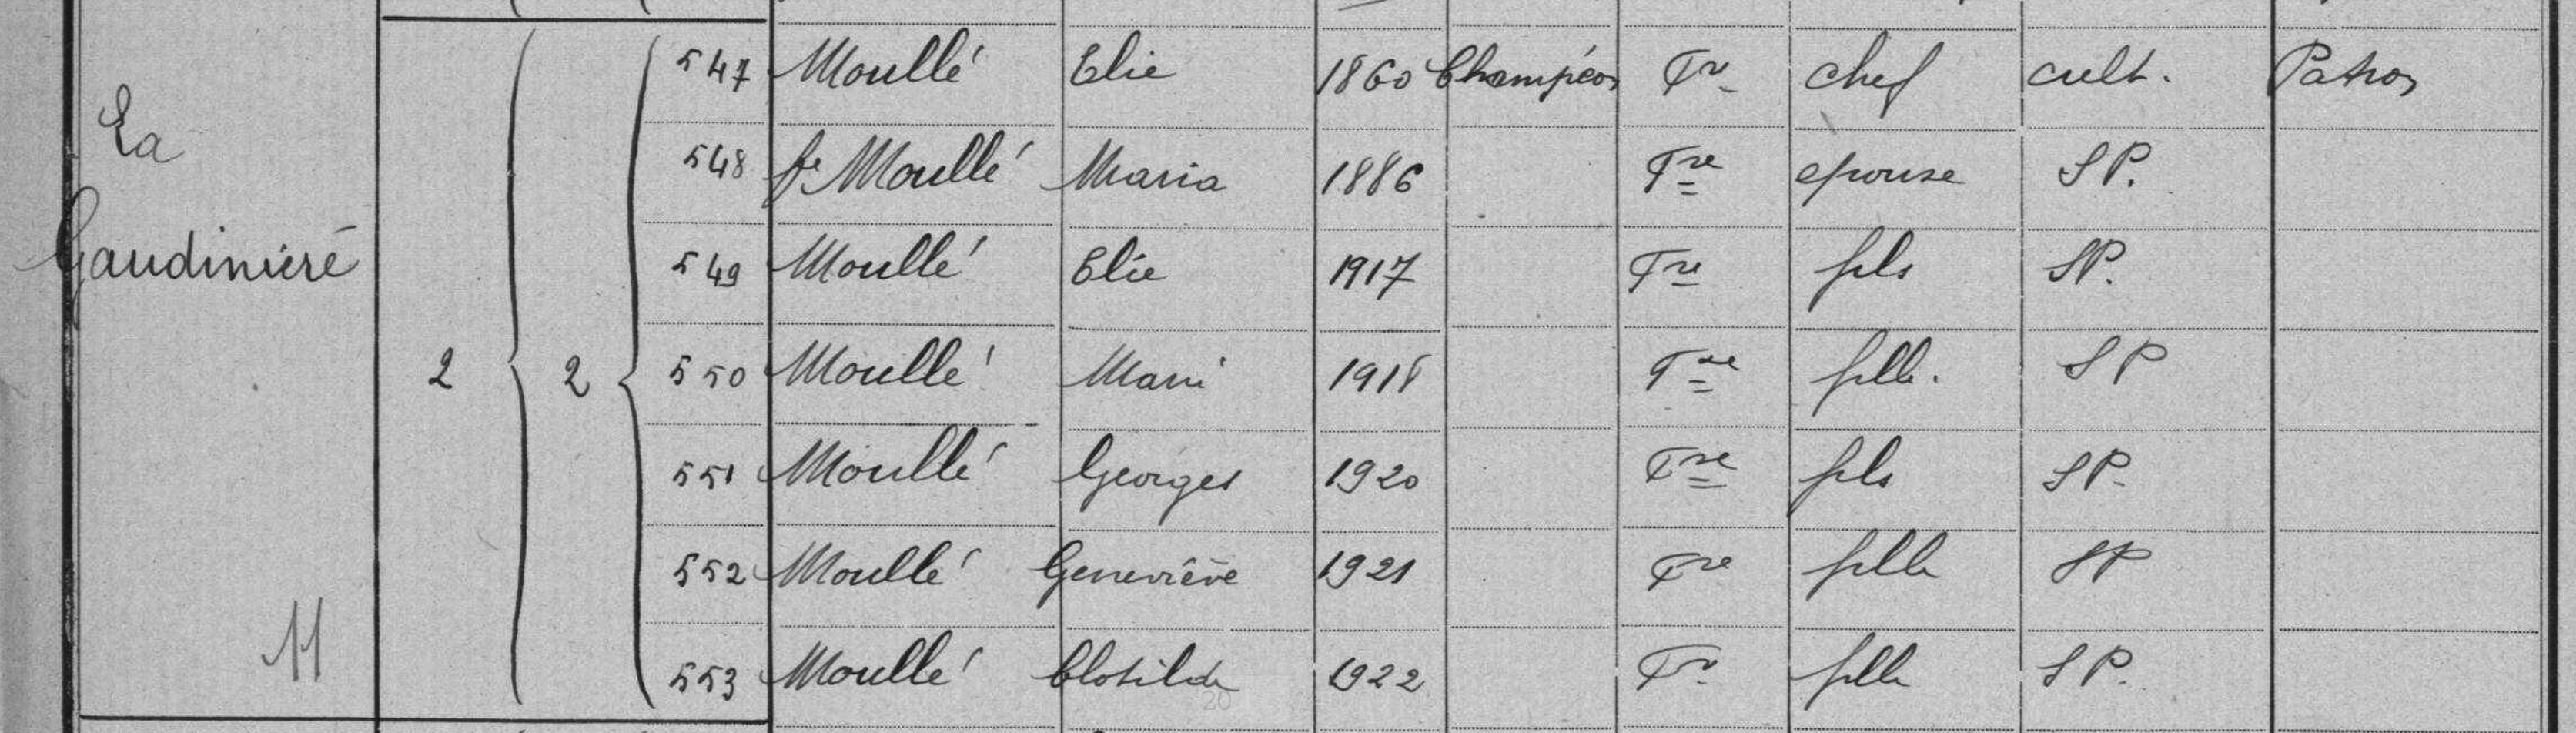 547 Moullé Elie 1860 Champéon Fr chef cult. Patron
La
548 fe Moullé Maria 1886 Fre epouse SP.
Gaudinière
549 Moullé Elie 1917 Fre fils SP.
2 2 550 Moullé Marie 1918 Fre fille. SP
551 Moullé Georges 1920 Fre fils SP.
552 Moullé Geneviève 1921 Fre fille SP
11
553 Moullé Clotilde 1922 Fr fille SP.